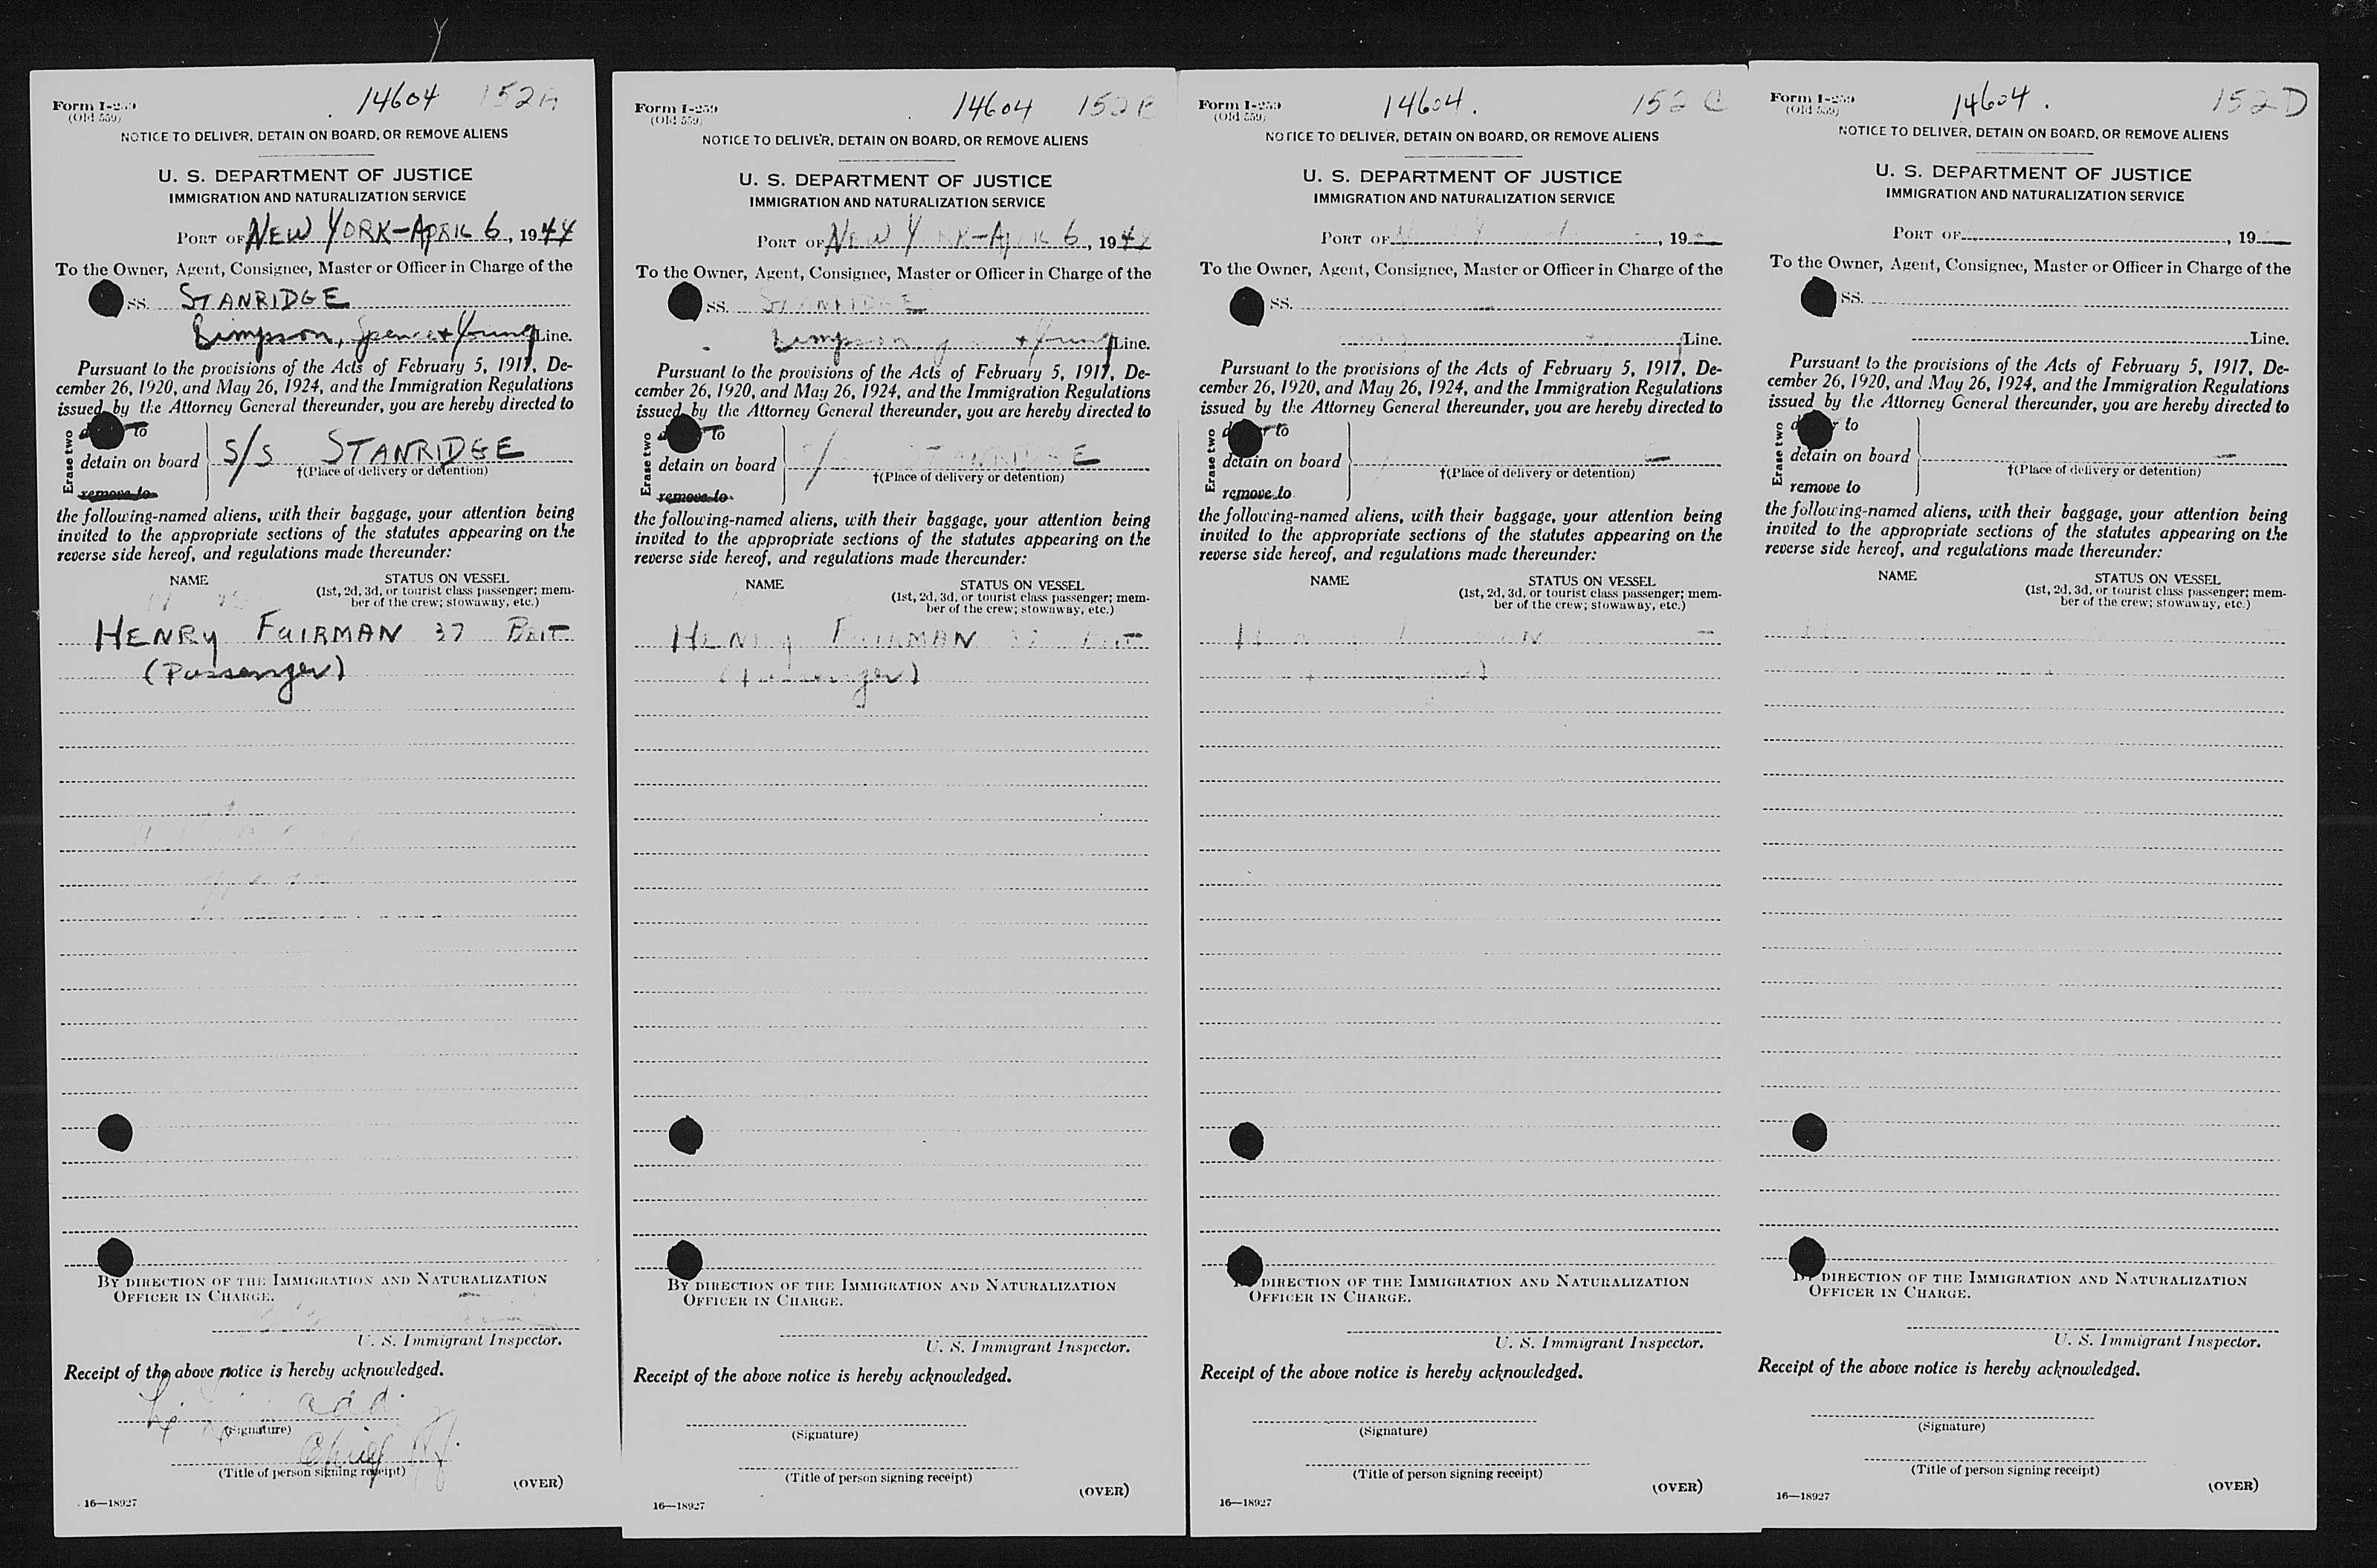 Form I-259
(Old 559)
14604 152A
NOTICE TO DELIVER, DETAIN ON BOARD, OR REMOVE ALIENS
U. S. DEPARTMENT OF JUSTICE
IMMIGRATION AND NATURALIZATION SERVICE
PORT OF NEW YORK-APRIL 6, 1944
To the Owner, Agent, Consignee, Master or Officer in Charge of the
SS. STANRIDGE
Simpson, Spence + Young Line.
Pursuant to the provisions of the Acts of February 5, 1917, De-
cember 26, 1920, and May 26, 1924, and the Immigration Regulations
issued by the Attorney General thereunder, you are hereby directed to
Erase two
to
detain on board S/S STANRIDGE
†(Place of delivery or detention)
remove to
the following-named aliens, with their baggage, your attention being
invited to the appropriate sections of the statutes appearing on the
reverse side hereof, and regulations made thereunder:
NAME STATUS ON VESSEL
(1st, 2d, 3d, or tourist class passenger; mem-
ber of the crew; stowaway, etc.)
HENRY FAIRMAN 37 BRIT
(Passenger)
BY DIRECTION OF THE IMMIGRATION AND NATURALIZATION
OFFICER IN CHARGE.
U. S. Immigrant Inspector.
Receipt of the above notice is hereby acknowledged.
(Signature)
Chief
(Title of person signing receipt)
(OVER)
16—18927
Form I-259
(Old 559)
14604 152B
NOTICE TO DELIVER, DETAIN ON BOARD, OR REMOVE ALIENS
U. S. DEPARTMENT OF JUSTICE
IMMIGRATION AND NATURALIZATION SERVICE
PORT OF NEW YORK-APRIL 6, 1944
To the Owner, Agent, Consignee, Master or Officer in Charge of the
SS. STANRIDGE
Simpson, + Young Line.
Pursuant to the provisions of the Acts of February 5, 1917, De-
cember 26, 1920, and May 26, 1924, and the Immigration Regulations
issued by the Attorney General thereunder, you are hereby directed to
Erase two
to
detain on board STANRIDGE
†(Place of delivery or detention)
remove to
the following-named aliens, with their baggage, your attention being
invited to the appropriate sections of the statutes appearing on the
reverse side hereof, and regulations made thereunder:
NAME STATUS ON VESSEL
(1st, 2d, 3d, or tourist class passenger; mem-
ber of the crew; stowaway, etc.)
HENRY FAIRMAN 37 BRIT
(Passenger)
BY DIRECTION OF THE IMMIGRATION AND NATURALIZATION
OFFICER IN CHARGE.
U. S. Immigrant Inspector.
Receipt of the above notice is hereby acknowledged.
(Signature)
(Title of person signing receipt)
(OVER)
16—18927
Form I-259
(Old 559)
14604. 152 C
NOTICE TO DELIVER, DETAIN ON BOARD, OR REMOVE ALIENS
U. S. DEPARTMENT OF JUSTICE
IMMIGRATION AND NATURALIZATION SERVICE
PORT OF , 19
To the Owner, Agent, Consignee, Master or Officer in Charge of the
SS.
Line.
Pursuant to the provisions of the Acts of February 5, 1917, De-
cember 26, 1920, and May 26, 1924, and the Immigration Regulations
issued by the Attorney General thereunder, you are hereby directed to
Erase two
to
detain on board
†(Place of delivery or detention)
remove to
the following-named aliens, with their baggage, your attention being
invited to the appropriate sections of the statutes appearing on the
reverse side hereof, and regulations made thereunder:
NAME STATUS ON VESSEL
(1st, 2d, 3d, or tourist class passenger; mem-
ber of the crew; stowaway, etc.)
BY DIRECTION OF THE IMMIGRATION AND NATURALIZATION
OFFICER IN CHARGE.
U. S. Immigrant Inspector.
Receipt of the above notice is hereby acknowledged.
(Signature)
(Title of person signing receipt)
(OVER)
16—18927
Form I-259
(Old 559)
14604. 152D
NOTICE TO DELIVER, DETAIN ON BOARD, OR REMOVE ALIENS
U. S. DEPARTMENT OF JUSTICE
IMMIGRATION AND NATURALIZATION SERVICE
PORT OF , 19
To the Owner, Agent, Consignee, Master or Officer in Charge of the
SS.
Line.
Pursuant to the provisions of the Acts of February 5, 1917, De-
cember 26, 1920, and May 26, 1924, and the Immigration Regulations
issued by the Attorney General thereunder, you are hereby directed to
Erase two
to
detain on board
†(Place of delivery or detention)
remove to
the following-named aliens, with their baggage, your attention being
invited to the appropriate sections of the statutes appearing on the
reverse side hereof, and regulations made thereunder:
NAME STATUS ON VESSEL
(1st, 2d, 3d, or tourist class passenger; mem-
ber of the crew; stowaway, etc.)
BY DIRECTION OF THE IMMIGRATION AND NATURALIZATION
OFFICER IN CHARGE.
U. S. Immigrant Inspector.
Receipt of the above notice is hereby acknowledged.
(Signature)
(Title of person signing receipt)
(OVER)
16—18927